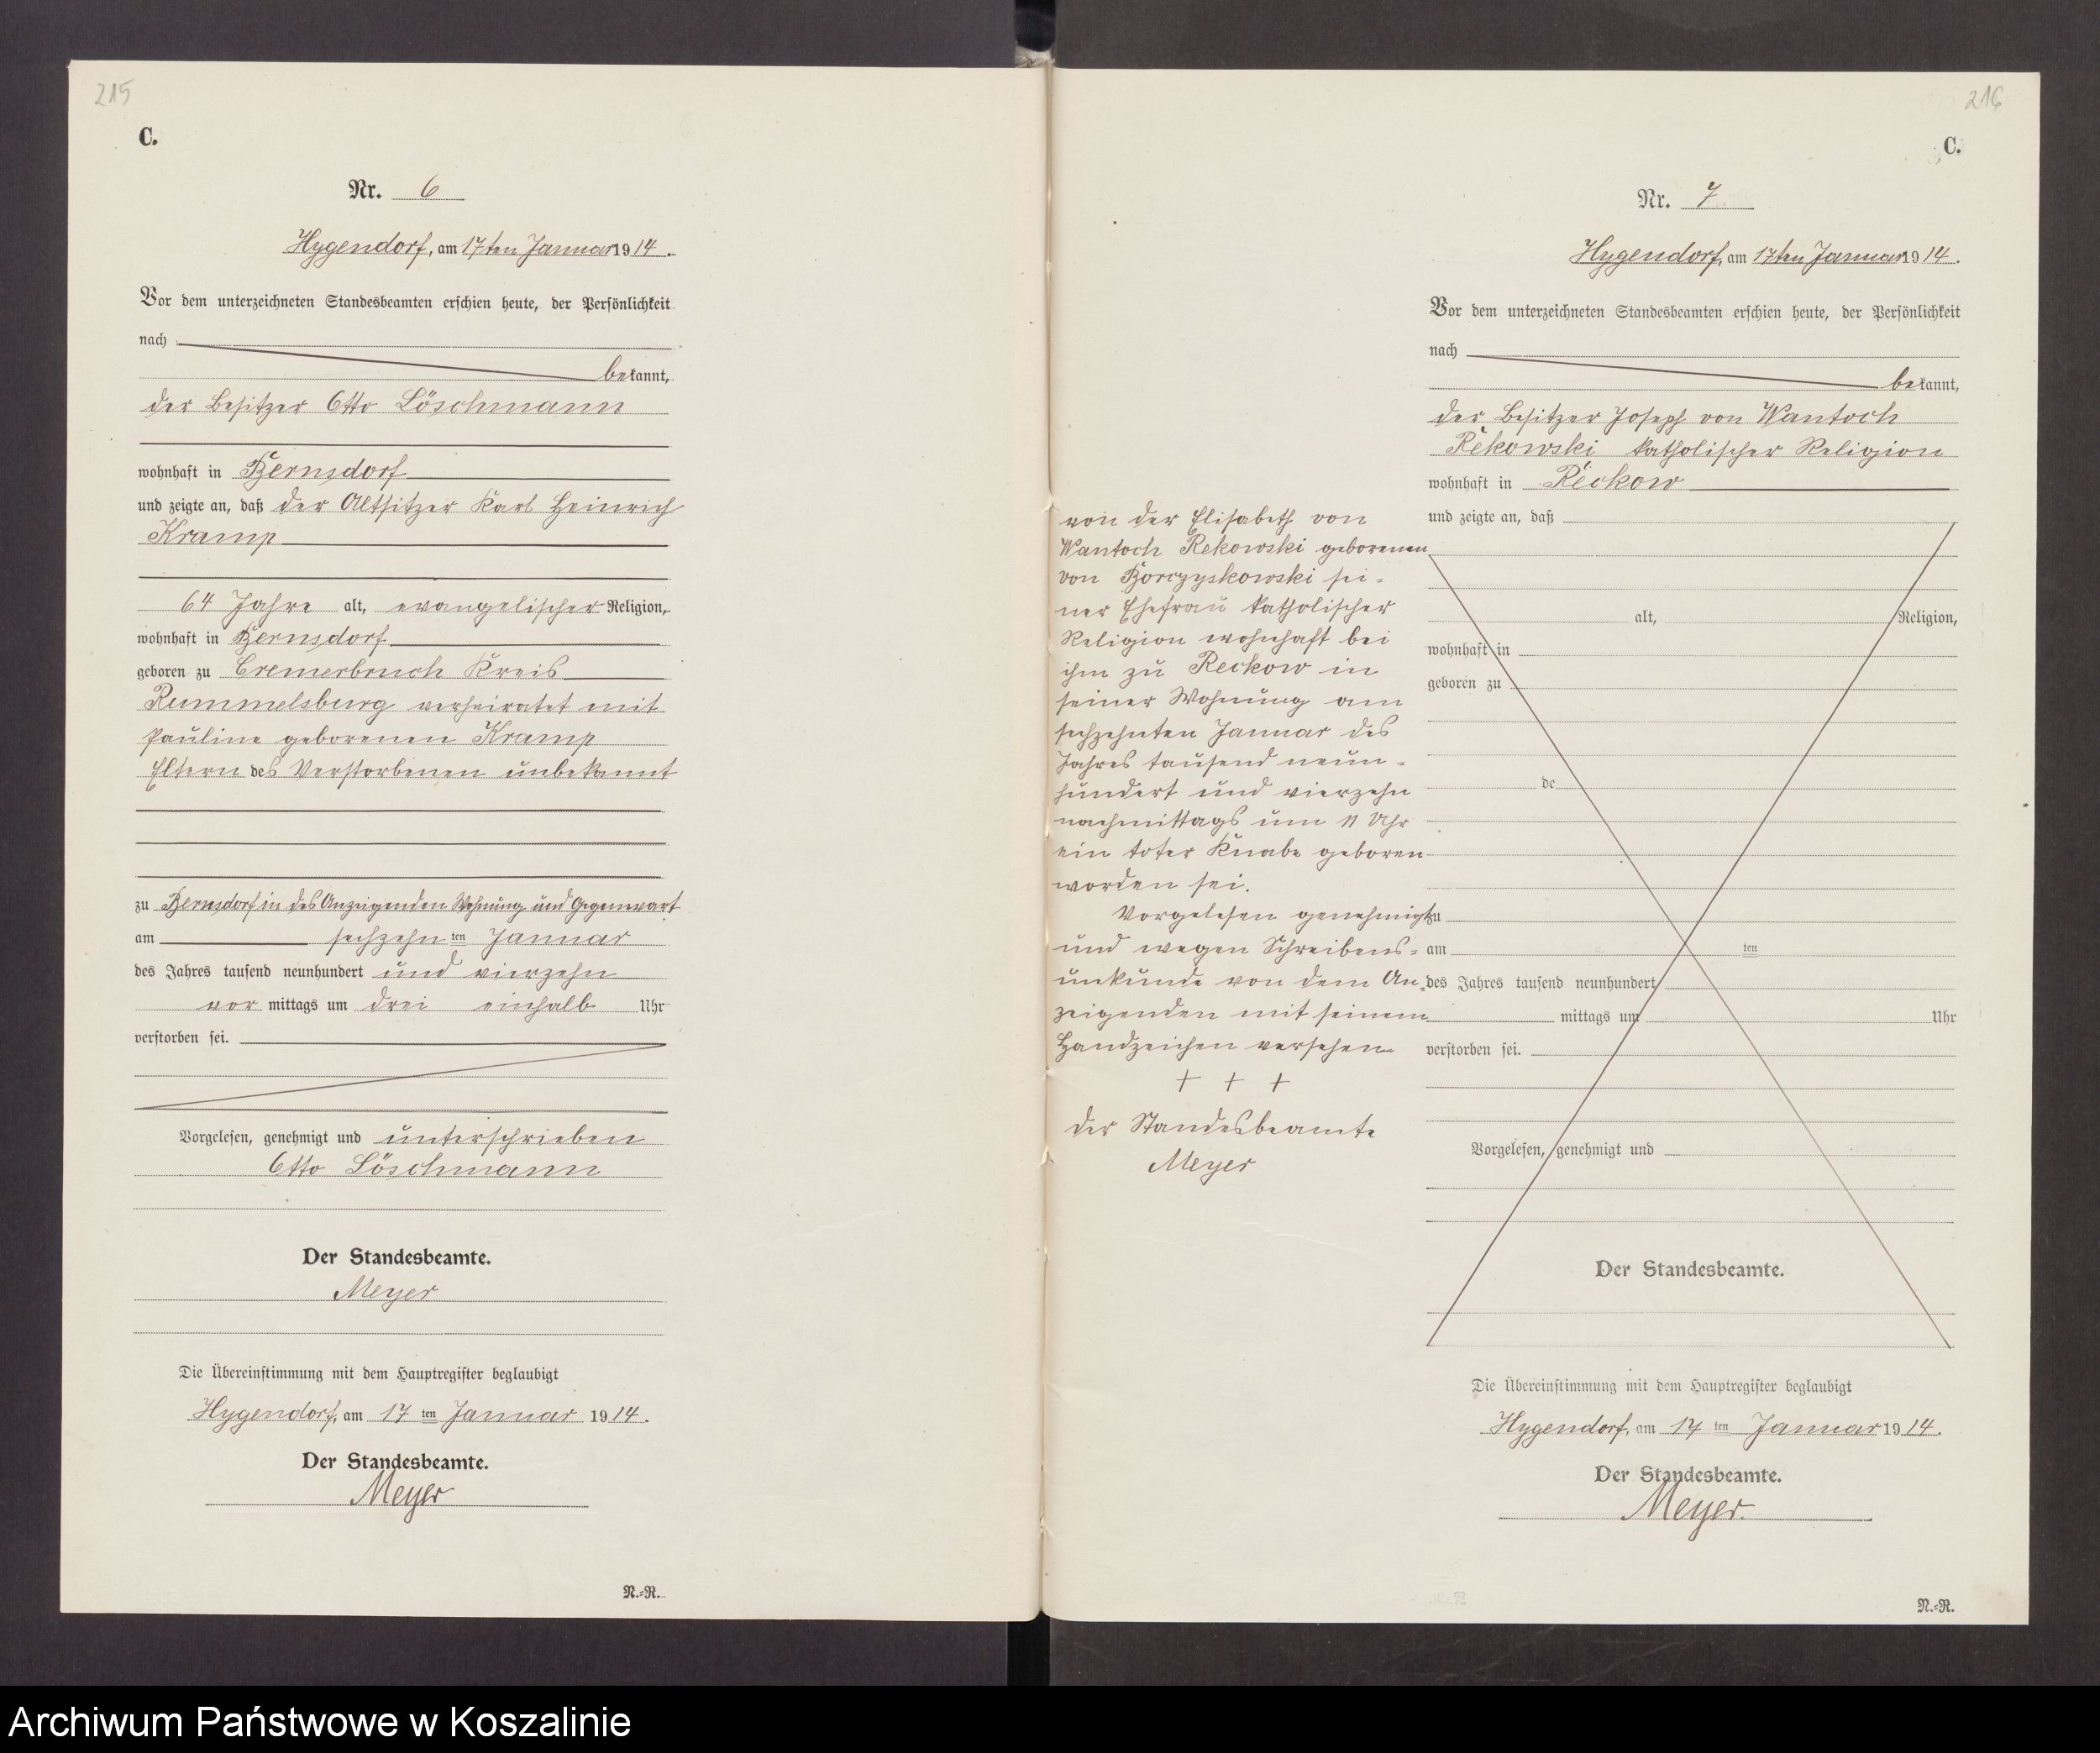 215
C.
Nr. 6
Hygendorf, am 17ten Januar 1914.
Vor dem unterzeichneten Standesbeamten erschien heute, der Persönlichkeit
nach
bekannt,
der Besitzer Otto Löschmann
wohnhaft in Bernsdorf
und zeigte an, daß der Altsitzer Karl Heinrich
Kramp
64 Jahre alt, evangelischer Religion,
wohnhaft in Bernsdorf
geboren zu Cremerbruch Kreis
Rummelsburg verheiratet mit
Pauline geborenen Kramp
Eltern des Verstorbenen unbekannt
zu Bernsdorf in des Anzeigenden Wohnung und Gegenwart
am sechzehnten Januar
des Jahres tausend neunhundert und vierzehn
vormittags um drei einhalb Uhr
verstorben sei.
Vorgelesen, genehmigt und unterschrieben
Otto Löschmann
Der Standesbeamte.
Meyer
Die Übereinstimmung mit dem Hauptregister beglaubigt
Hygendorf, am 17ten Januar 1914.
Der Standesbeamte.
Meyer
N.-R.
216
C.
Nr. 7
Hygendorf, am 17ten Januar 1914.
Vor dem unterzeichneten Standesbeamten erschien heute, der Persönlichkeit
nach
bekannt,
der Besitzer Joseph von Wantoch
Rekowski katholischer Religion
wohnhaft in Reckow
und zeigte an, daß
von der Elisabeth von
Wantoch Rekowski geborenen
von Borczyskowski sei-
ner Ehefrau katholischer
Religion wohnhaft bei
ihm zu Reckow in
seiner Wohnung am
sechzehnten Januar des
Jahres tausend neun-
hundert und vierzehn
nachmittags um 11 Uhr
ein toter Knabe geboren
worden sei.
Vorgelesen genehmigt
und wegen Schreibens-
unkunde von dem An-
zeigenden mit seinem
Handzeichen versehen
+ + +
der Standesbeamte
Meyer
alt, Religion,
wohnhaft in
geboren zu
de
zu
am ten
des Jahres tausend neunhundert
mittags um Uhr
verstorben sei.
Vorgelesen, genehmigt und
Der Standesbeamte.
Die Übereinstimmung mit dem Hauptregister beglaubigt
Hygendorf, am 17ten Januar 1914.
Der Standesbeamte.
Meyer.
N.-R.
Archiwum Państwowe w Koszalinie